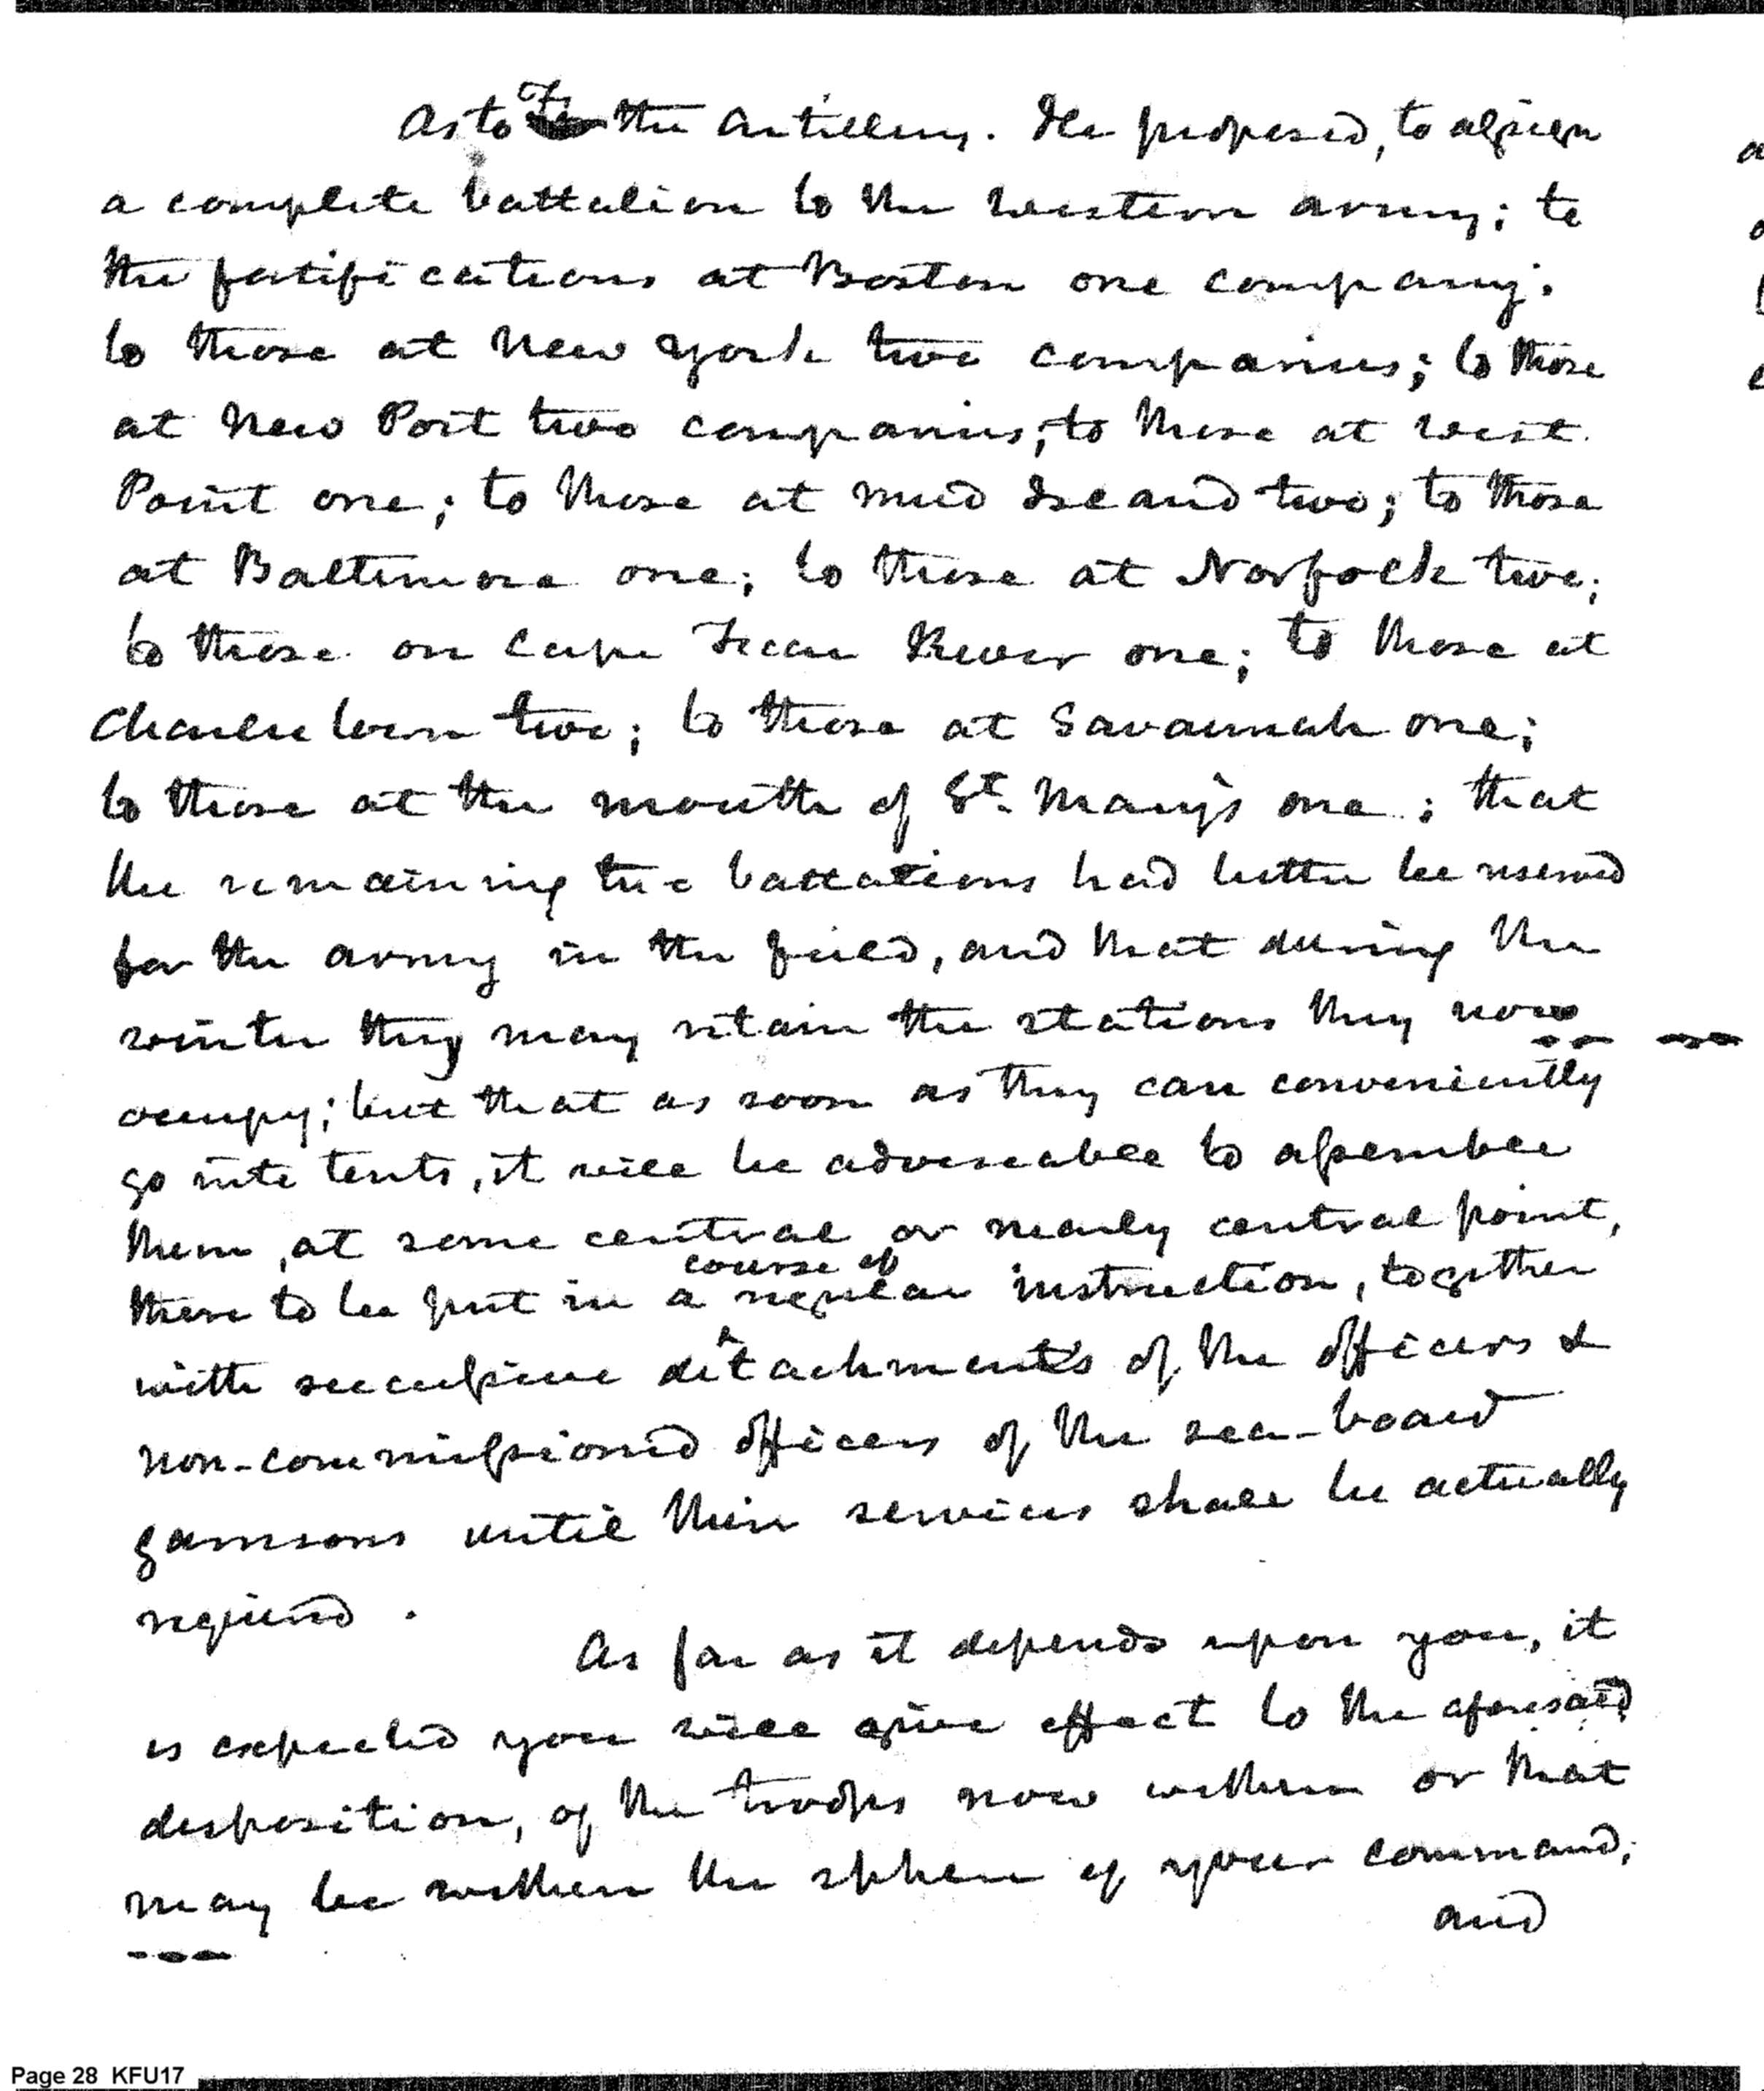 As to the Artillery. He proposed, to assign
a complete battalion to the western army; to
the fortifications at Boston one company;
to those at New York two companies; to those
at New Port two companies; to those at West
Point one; to those at Mud Island two; to those
at Baltimore one; to those at Norfolk two;
to those on Cape Fear River one; to those at
Charlestown two; to those at Savannah one;
to those at the mouth of St. Mary's one; that
the remaining two battalions had better be reserved
for the army in the field, and that during the
winter they may retain the stations they now
occupy; but that as soon as they can conveniently
go into tents, it will be adviseable to assemble
them, at some central or nearly central point,
course of
there to be put in a regular instruction, together
with successive detachments of the officers &
non-commissioned officers of the sea-board
garrisons until their services shall be actually
required.
As far as it depends upon you, it
is expected you will give effect to the aforesaid
disposition, of the troops now within or that
may be within the sphere of your command;
and
Page 28 KFU17